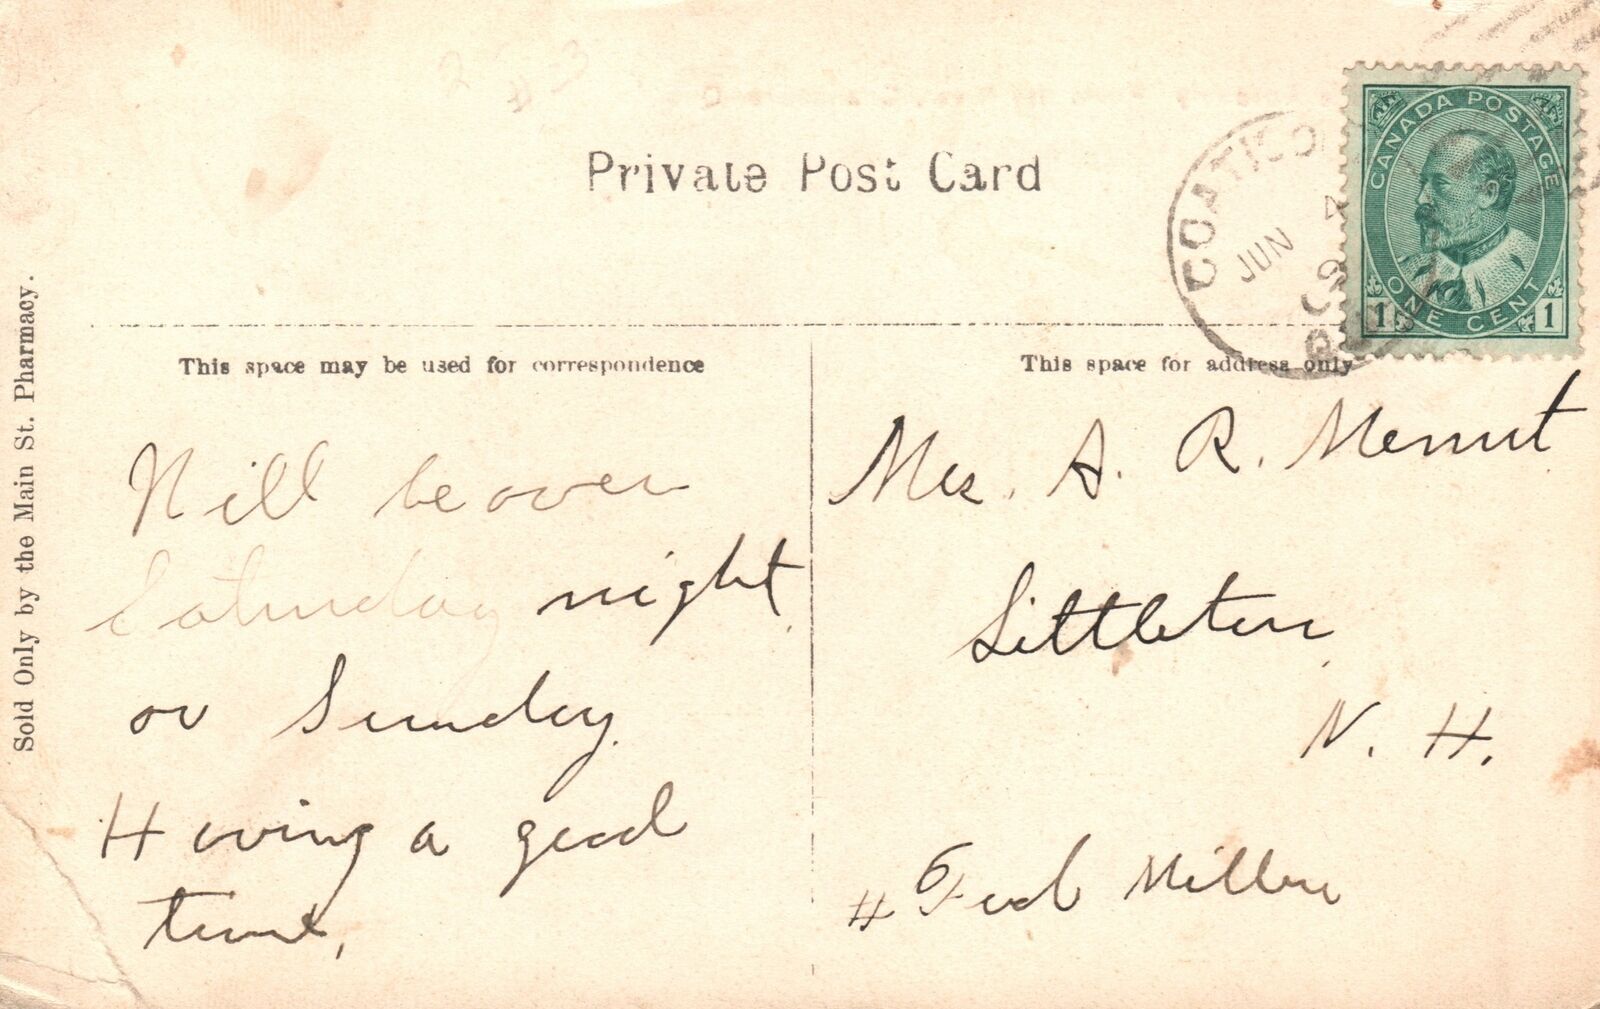 Private Post Card
COATICO
JUN
09
CANADA POSTAGE
1 ONE CENT 1
This space may be used for correspondence
This space for address only
Sold Only by the Main St. Pharmacy.
Will be over
Saturday night
or Sunday.
Having a good
time,
Mrs. A. R. Merrill
Littleton
N. H.
# 6